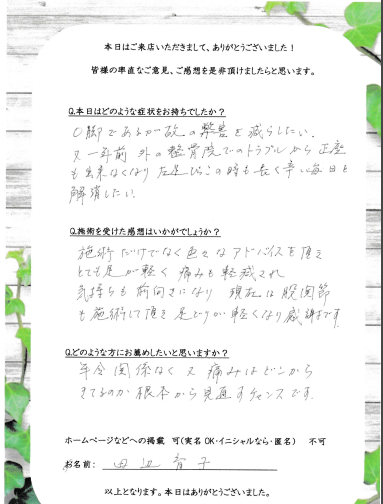 本日はご来店いただきまして、ありがとうございました！
皆様の率直なご意見、ご感想を是非頂けましたらと思います。
Q.本日はどのような症状をお持ちでしたか？
O脚であるが故の弊害を減らしたい。
又一年前 外の整骨院でのトラブルから正座
も出来なくなり 左足 の時も長く辛い毎日を
解消したい。
Q.施術を受けた感想はいかがでしょうか？
施術だけでなく色々なアドバイスを頂き
とても足が軽く 痛みも軽減され
気持ちも前向きになり 現在は股関節
も施術して頂き 足どりが軽くなり感謝です。
Q.どのような方にお薦めしたいと思いますか？
年令関係なく 又 痛みはどこから
きてるのか 根本から見直すチャンスです。
ホームページなどへの掲載 可(実名OK・イニシャルなら・匿名) 不可
お名前： 田辺 育子
以上となります。本日はありがとうございました。